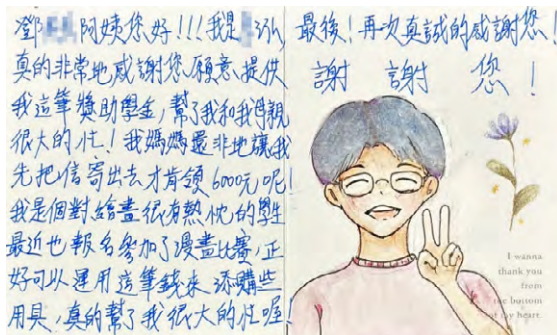 鄧 阿姨您好!!!我是 泓,
真的非常地感謝您願意提供
我這筆獎助學金,幫了我和我母親
很大的忙!我媽媽還非地讓我
先把信寄出去才肯領6000元呢!
我是個對繪畫很有熱忱的學生
最近也報名參加了漫畫比賽,正
好可以運用這筆錢來添購些
用具,真的幫了我很大的忙喔!
最後!再次真誠的感謝您!
謝謝您!
I wanna
thank you
from
the bottom
of my heart.